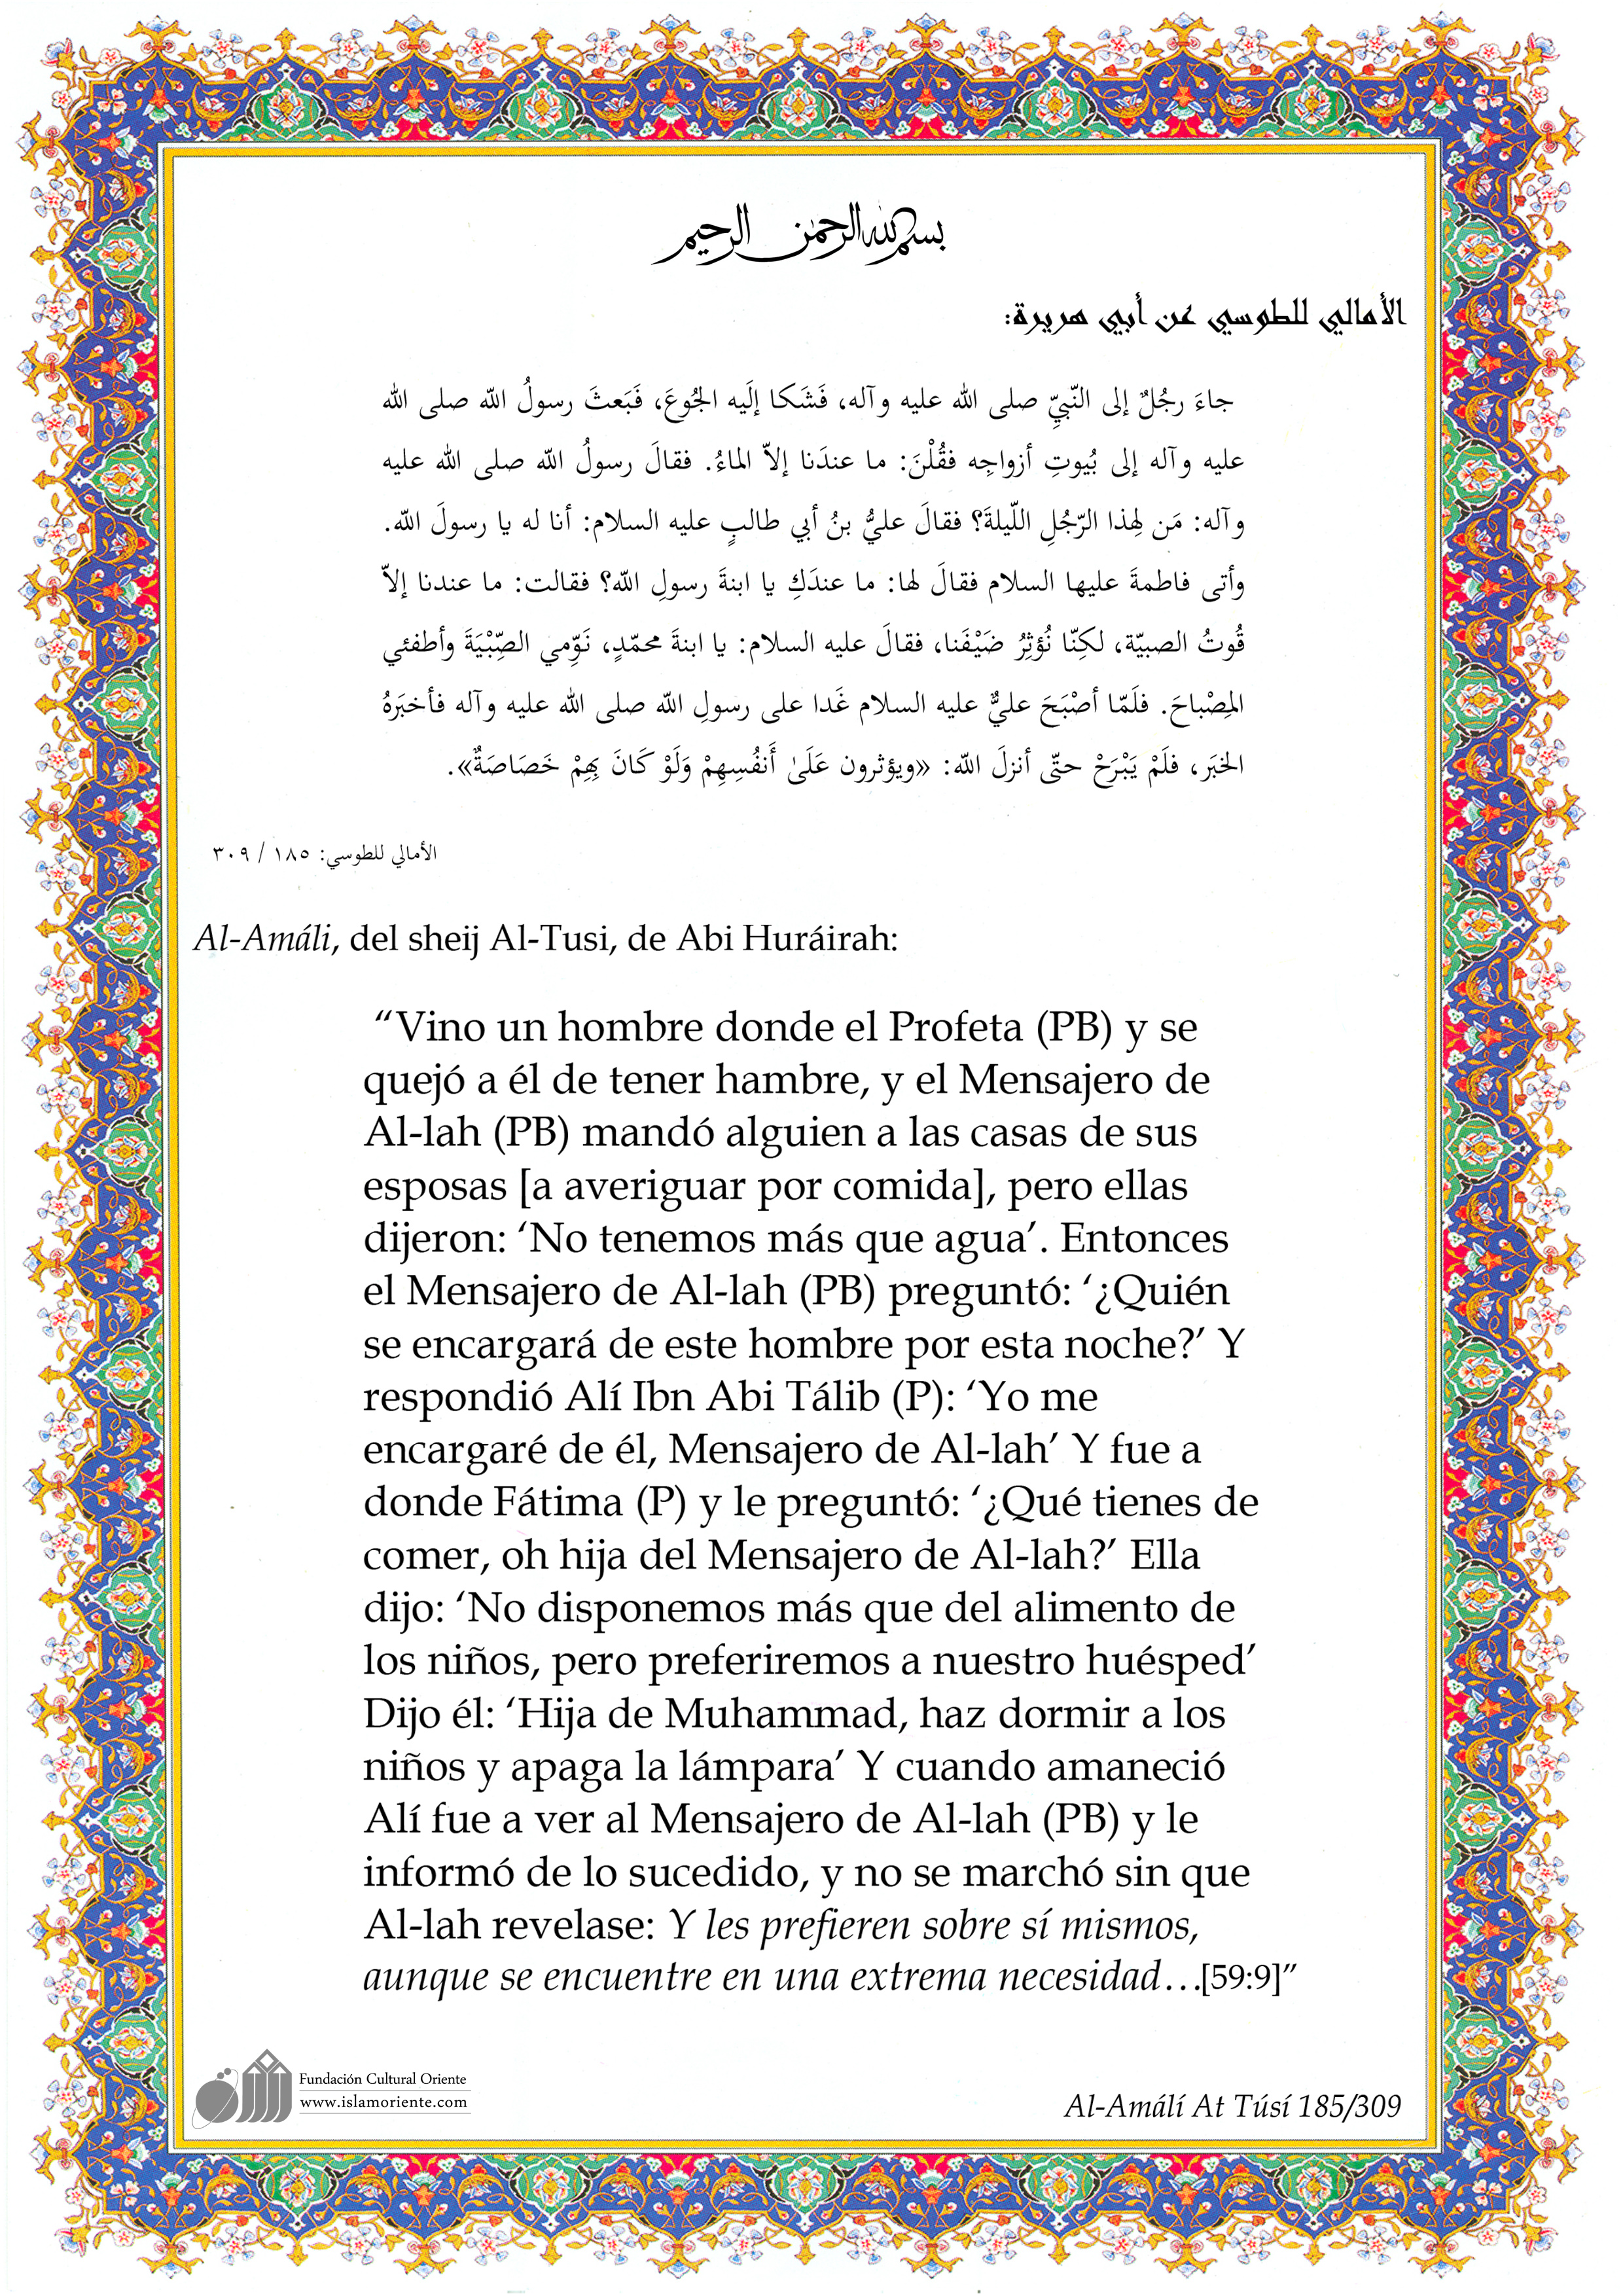 بسم الله الرحمن الرحيم
الأمالي للطوسي عن أبي هريرة:
جاءَ رجُلٌ إلى النّبيِّ صلى الله عليه وآله، فَشَكا إلَيه الجُوعَ، فَبَعثَ رسولُ اللّه صلى الله
عليه وآله إلى بُيوتِ أزواجِه فقُلْنَ: ما عندَنا إلاّ الماءُ. فقالَ رسولُ اللّه صلى الله عليه
وآله: مَن لِهذا الرّجُلِ اللّيلةَ؟ فقالَ عليُّ بنُ أبي طالبٍ عليه السلام: أنا له يا رسولَ اللّه.
وأتى فاطمةَ عليها السلام فقالَ لها: ما عندَكِ يا ابنةَ رسولِ اللّه؟ فقالت: ما عندنا إلاّ
قُوتُ الصبيّة، لكنّا نُؤثِرُ ضَيْفَنا، فقالَ عليه السلام: يا ابنةَ محمّدٍ، نَوِّمي الصِّبْيَةَ وأطفئي
المِصْباحَ. فلَمّا أصْبَحَ عليٌّ عليه السلام غَدا على رسولِ اللّه صلى الله عليه وآله فأخبَرَهُ
الخبَر، فلَمْ يَبْرَحْ حتّى أنزلَ اللّه: «ويؤثرون عَلَىٰ أَنفُسِهِمْ وَلَوْ كَانَ بِهِمْ خَصَاصَةٌ».
الأمالي للطوسي: ١٨٥ / ٣٠٩
Al-Amáli, del sheij Al-Tusi, de Abi Huráirah:
“Vino un hombre donde el Profeta (PB) y se
quejó a él de tener hambre, y el Mensajero de
Al-lah (PB) mandó alguien a las casas de sus
esposas [a averiguar por comida], pero ellas
dijeron: ‘No tenemos más que agua’. Entonces
el Mensajero de Al-lah (PB) preguntó: ‘¿Quién
se encargará de este hombre por esta noche?’ Y
respondió Alí Ibn Abi Tálib (P): ‘Yo me
encargaré de él, Mensajero de Al-lah’ Y fue a
donde Fátima (P) y le preguntó: ‘¿Qué tienes de
comer, oh hija del Mensajero de Al-lah?’ Ella
dijo: ‘No disponemos más que del alimento de
los niños, pero preferiremos a nuestro huésped’
Dijo él: ‘Hija de Muhammad, haz dormir a los
niños y apaga la lámpara’ Y cuando amaneció
Alí fue a ver al Mensajero de Al-lah (PB) y le
informó de lo sucedido, y no se marchó sin que
Al-lah revelase: Y les prefieren sobre sí mismos,
aunque se encuentre en una extrema necesidad…[59:9]”
Fundación Cultural Oriente
www.islamoriente.com
Al-Amálí At Túsí 185/309